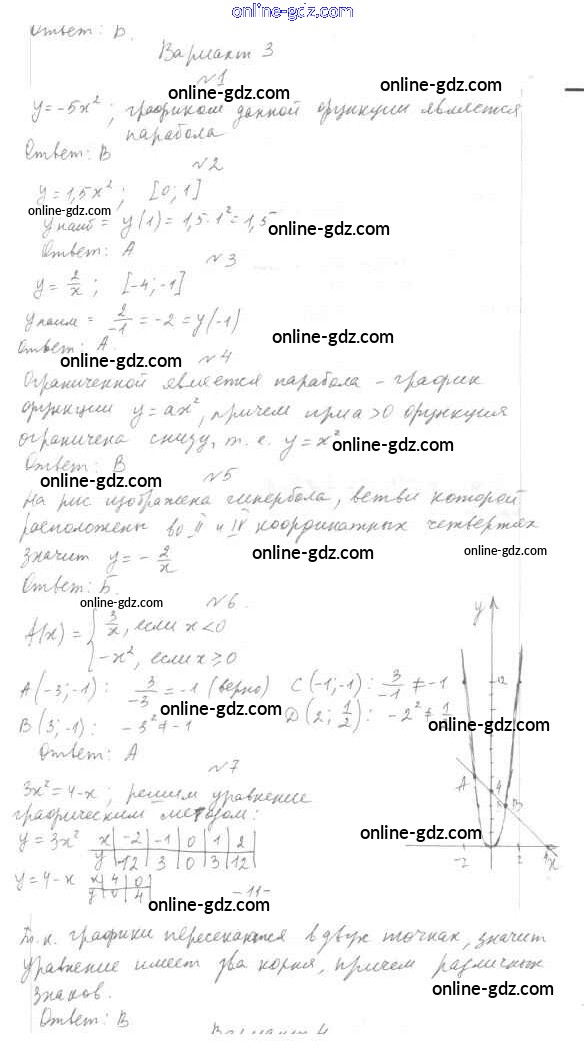 online-gdz.com
Ответ: Б.
Вариант 3
№1
online-gdz.com online-gdz.com
y = -5x²; графиком данной функции является
парабола
Ответ: В
№2
y = 1,5x²; [0; 1]
online-gdz.com
yнаиб = y(1) = 1,5·1² = 1,5
online-gdz.com
Ответ: А
№3
y = 2/x; [-4; -1]
yнаим = 2/-1 = -2 = y(-1)
online-gdz.com
Ответ: А.
online-gdz.com
№4
Ограниченной является парабола - график
функции y = ax², причем при a>0 функция
ограничена снизу, т.е. y = x²
online-gdz.com
Ответ: В
online-gdz.com
№5
На рис изображена гипербола, ветви которой
расположены во II и IV координатных четвертях
значит y = - 2/x
online-gdz.com online-gdz.com
Ответ: Б.
online-gdz.com
№6.
A(x) = { 3/x, если x < 0
-x², если x ⩾ 0
A(-3; -1): 3/-3 = -1 (верно) C(-1; -1): 3/-1 ≠ -1
online-gdz.com
B(3; -1): -3² ≠ -1 D(2; 1/2): -2² ≠ 1/2
online-gdz.com
Ответ: А
№7
3x² = 4-x; решим уравнение
графическим методом:
y = 3x² x -2 -1 0 1 2
y 12 3 0 3 12
y = 4-x x 4 0
y 0 4
online-gdz.com
y
12
A
4
B
-2 2 4 x
-11-
online-gdz.com
Т.к. графики пересекаются в двух точках, значит
уравнение имеет два корня, причем различных
знаков.
online-gdz.com
Ответ: В
online-gdz.com
Вариант 4